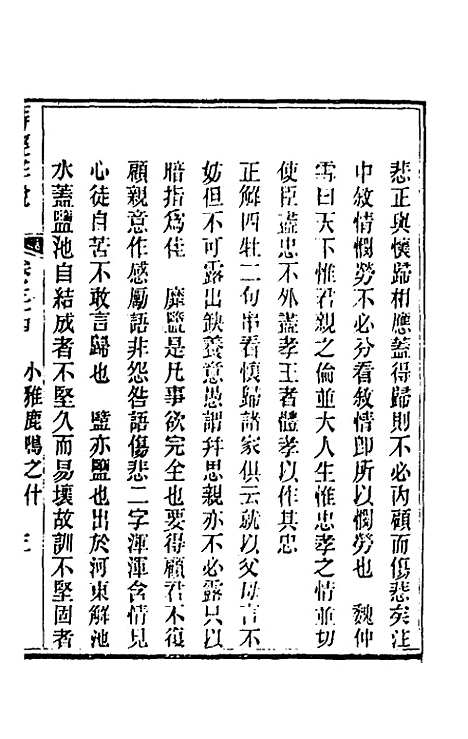 悲正與懷歸相應蓋得歸則不必內顧而傷悲矣注
中敘情憫勞不必分看敘情卽所以憫勞也　魏仲
雪曰天下惟君親之倫並大人生惟忠孝之情並切
使臣盡忠不外盡孝王者體孝以作其忠
正解四牡二句串看懷歸諸家俱云就以父母言不
妨但不可露出缺養意愚謂幷思親亦不必露只以
暗指爲佳　靡盬是凡事欲完全也要得顧君不復
顧親意作感勵語非怨咎語傷悲二字渾渾含情見
心徒自苦不敢言歸也　盬亦鹽也出於河東解池
水蓋鹽池自結成者不堅久而易壞故訓不堅固者
小雅鹿鳴之什